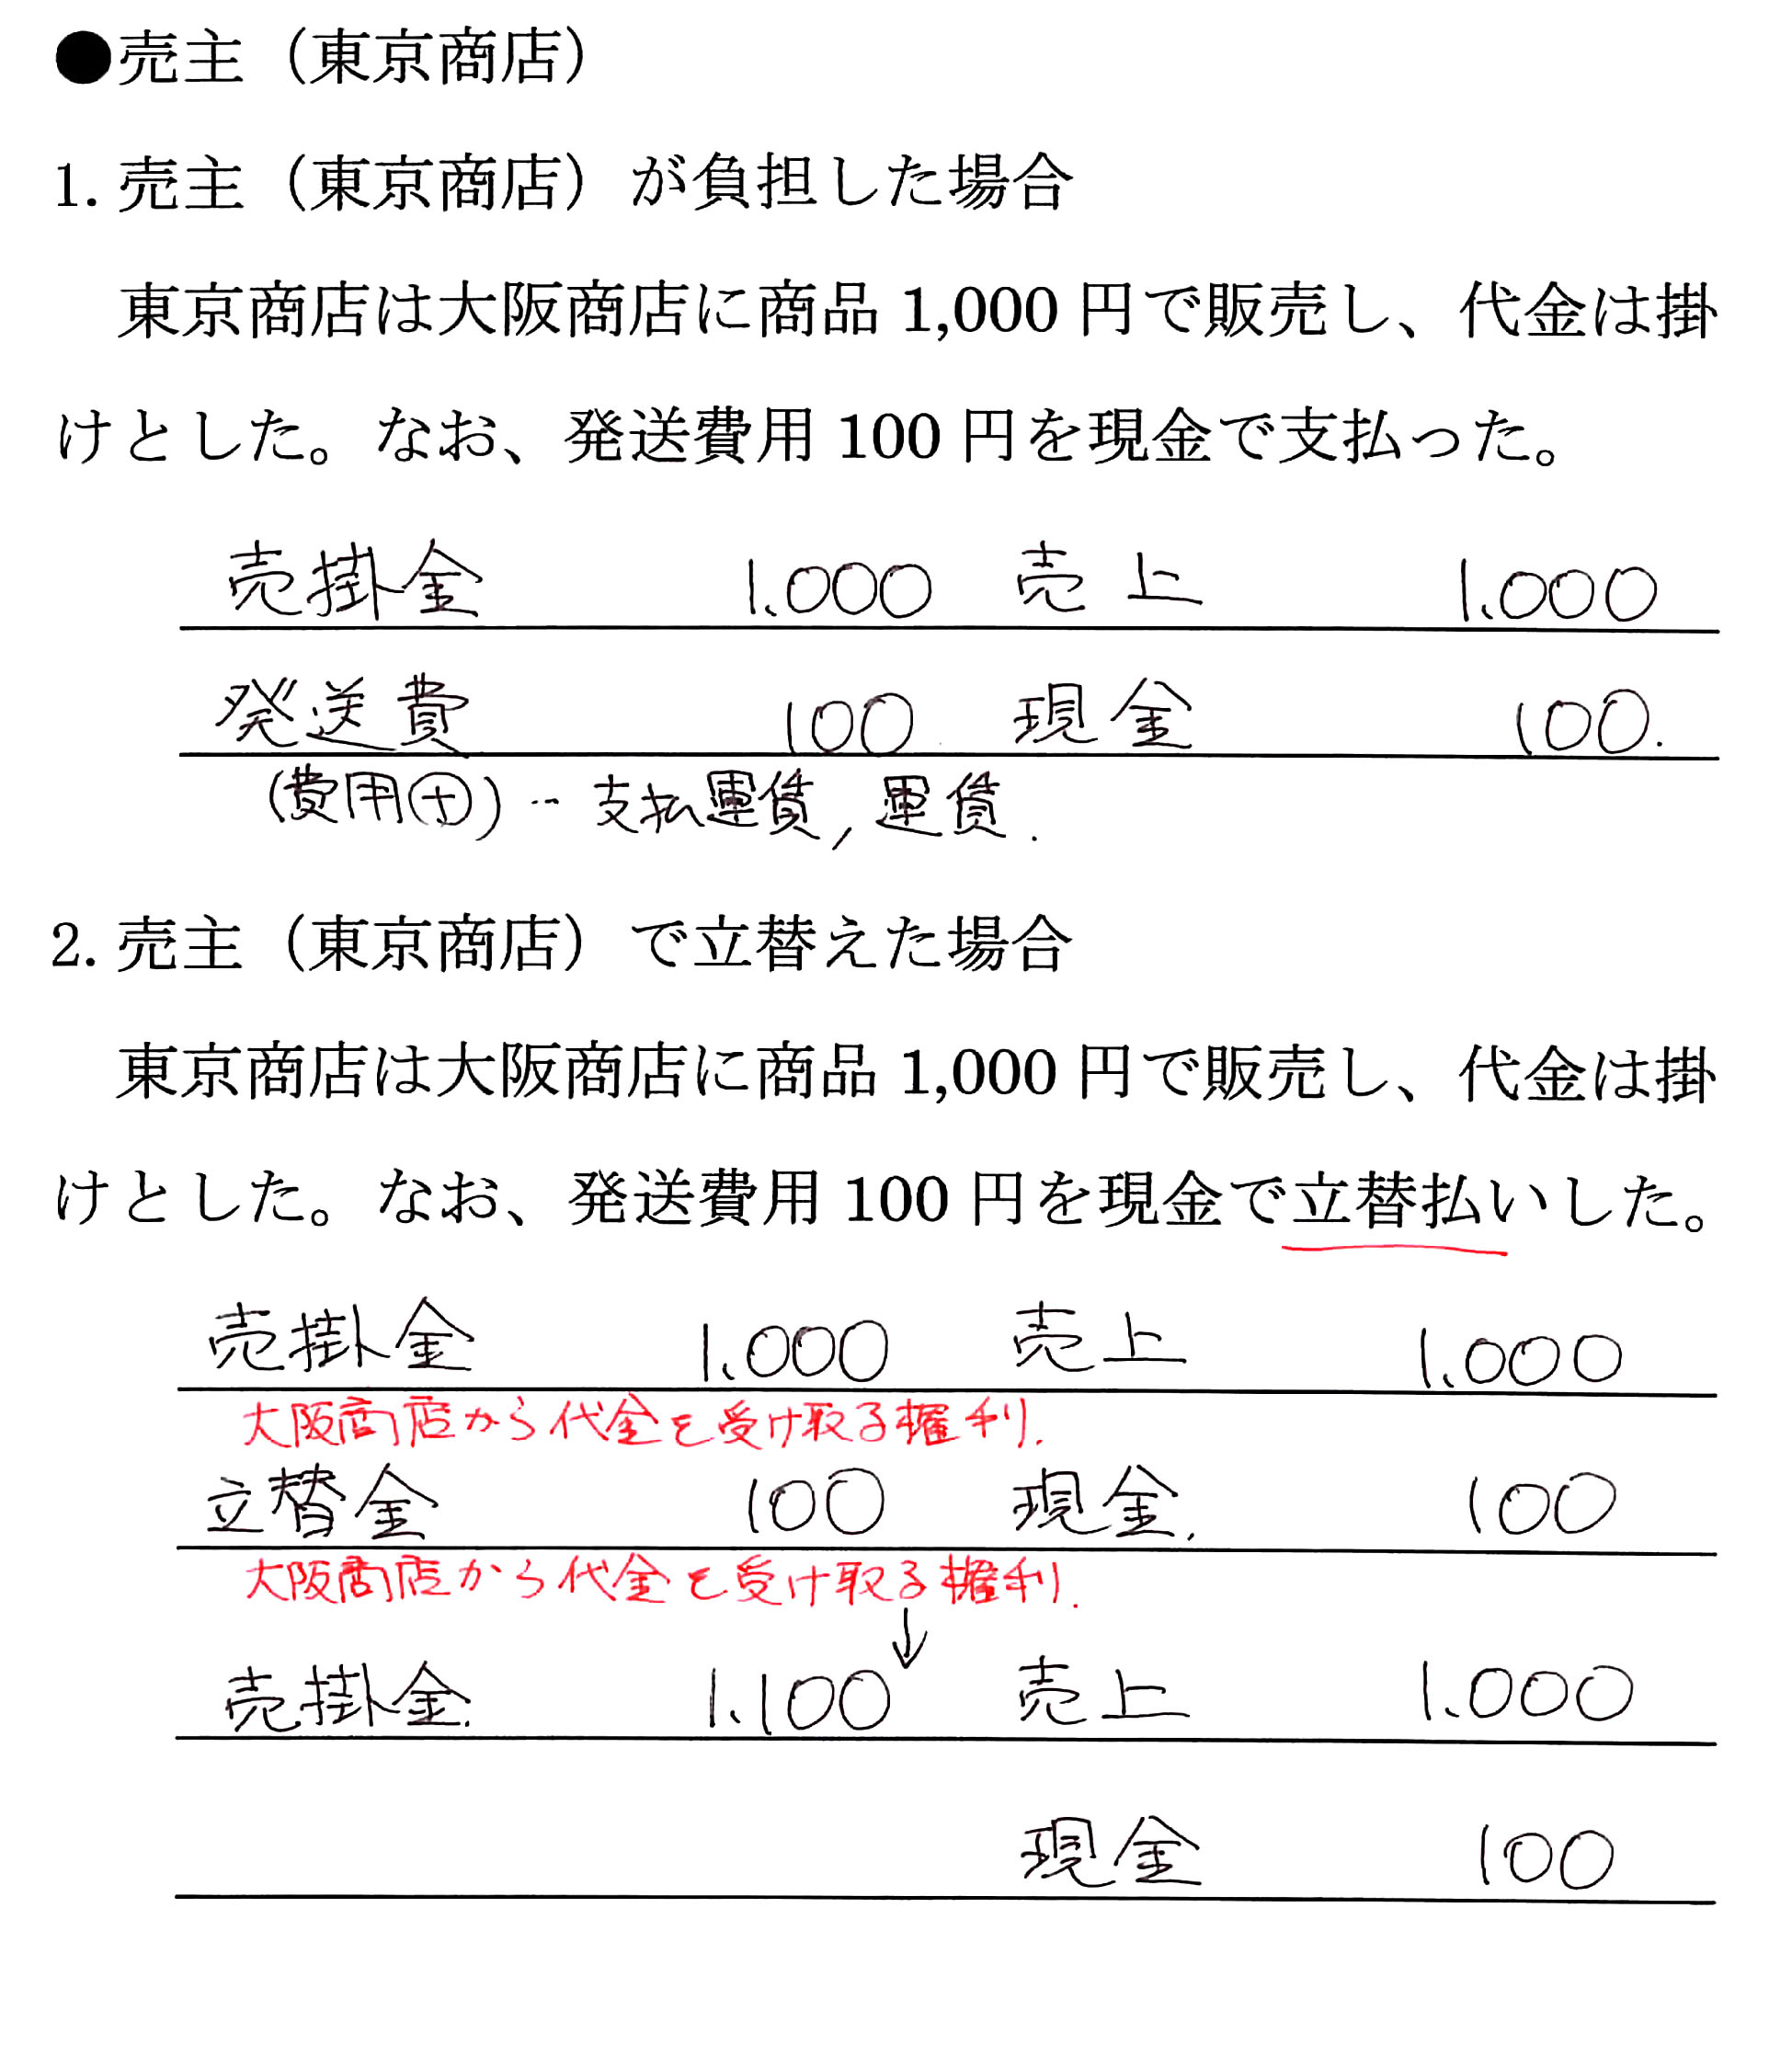 ●売主（東京商店）
1. 売主（東京商店）が負担した場合
東京商店は大阪商店に商品 1,000 円で販売し、代金は掛
けとした。なお、発送費用 100 円を現金で支払った。
売掛金 1.000 売上 1.000
発送費 100 現金 100.
(費用⊕)‥支払運賃, 運賃.
2. 売主（東京商店）で立替えた場合
東京商店は大阪商店に商品 1,000 円で販売し、代金は掛
けとした。なお、発送費用 100 円を現金で立替払いした。
売掛金 1.000 売上 1.000
大阪商店から代金を受け取る権利.
立替金 100 現金. 100
大阪商店から代金を受け取る権利.
↓
売掛金. 1.100 売上 1.000
現金 100